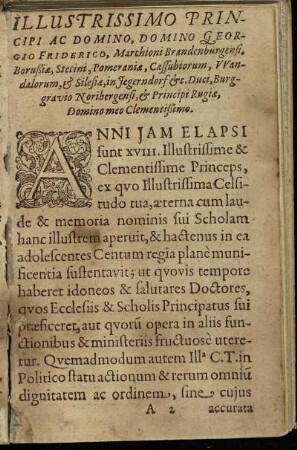 ILLUSTRISSIMO PRIN-
CIPI AC DOMINO, DOMINO GEOR-
GIO FRIDERICO, Marchioni Brandenburgensi,
Borußiæ, Stetini, Pomeraniæ, Caſſubiorum, VVan-
dalorum, & Sileſiæ, in Jegerndorf &c. Duci, Burg-
gravio Noribergenſi, & Principi Rugiæ,
Domino meo Clementißimo.
ANNI JAM ELAPSI
ſunt XVIII. Illuſtriſſime &
Clementiſſime Princeps,
ex qvo Illuſtriſſima Celſi-
tudo tua, æterna cum lau-
de & memoria nominis ſui Scholam
hanc illuſtrem aperuit, & hactenus in ea
adoleſcentes Centum regia planè muni-
ficentia ſuſtentavit; ut qvovis tempore
haberet idoneos & ſalutares Doctores,
qvos Eccleſiis & Scholis Principatus ſui
præficeret, aut qvorũ opera in aliis fun-
ctionibus & miniſteriis fructuosè utere-
tur. Qvemadmodum autem Illª C.T. in
Politico ſtatu actionum & rerum omniũ
dignitatem ac ordinem, ſine cujus
A 2 accurata